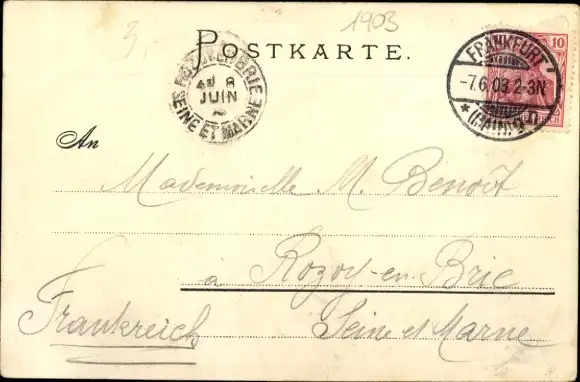 3,-
1903
POSTKARTE.
10
FRANKFURT
-7.6.03.2-3N
* (MAIN)
ROZOY-EN-BRIE
8
JUIN
SEINE ET MARNE
An
Mademoiselle M. Benoît
à Rozoy-en-Brie
Frankreich
Seine et Marne